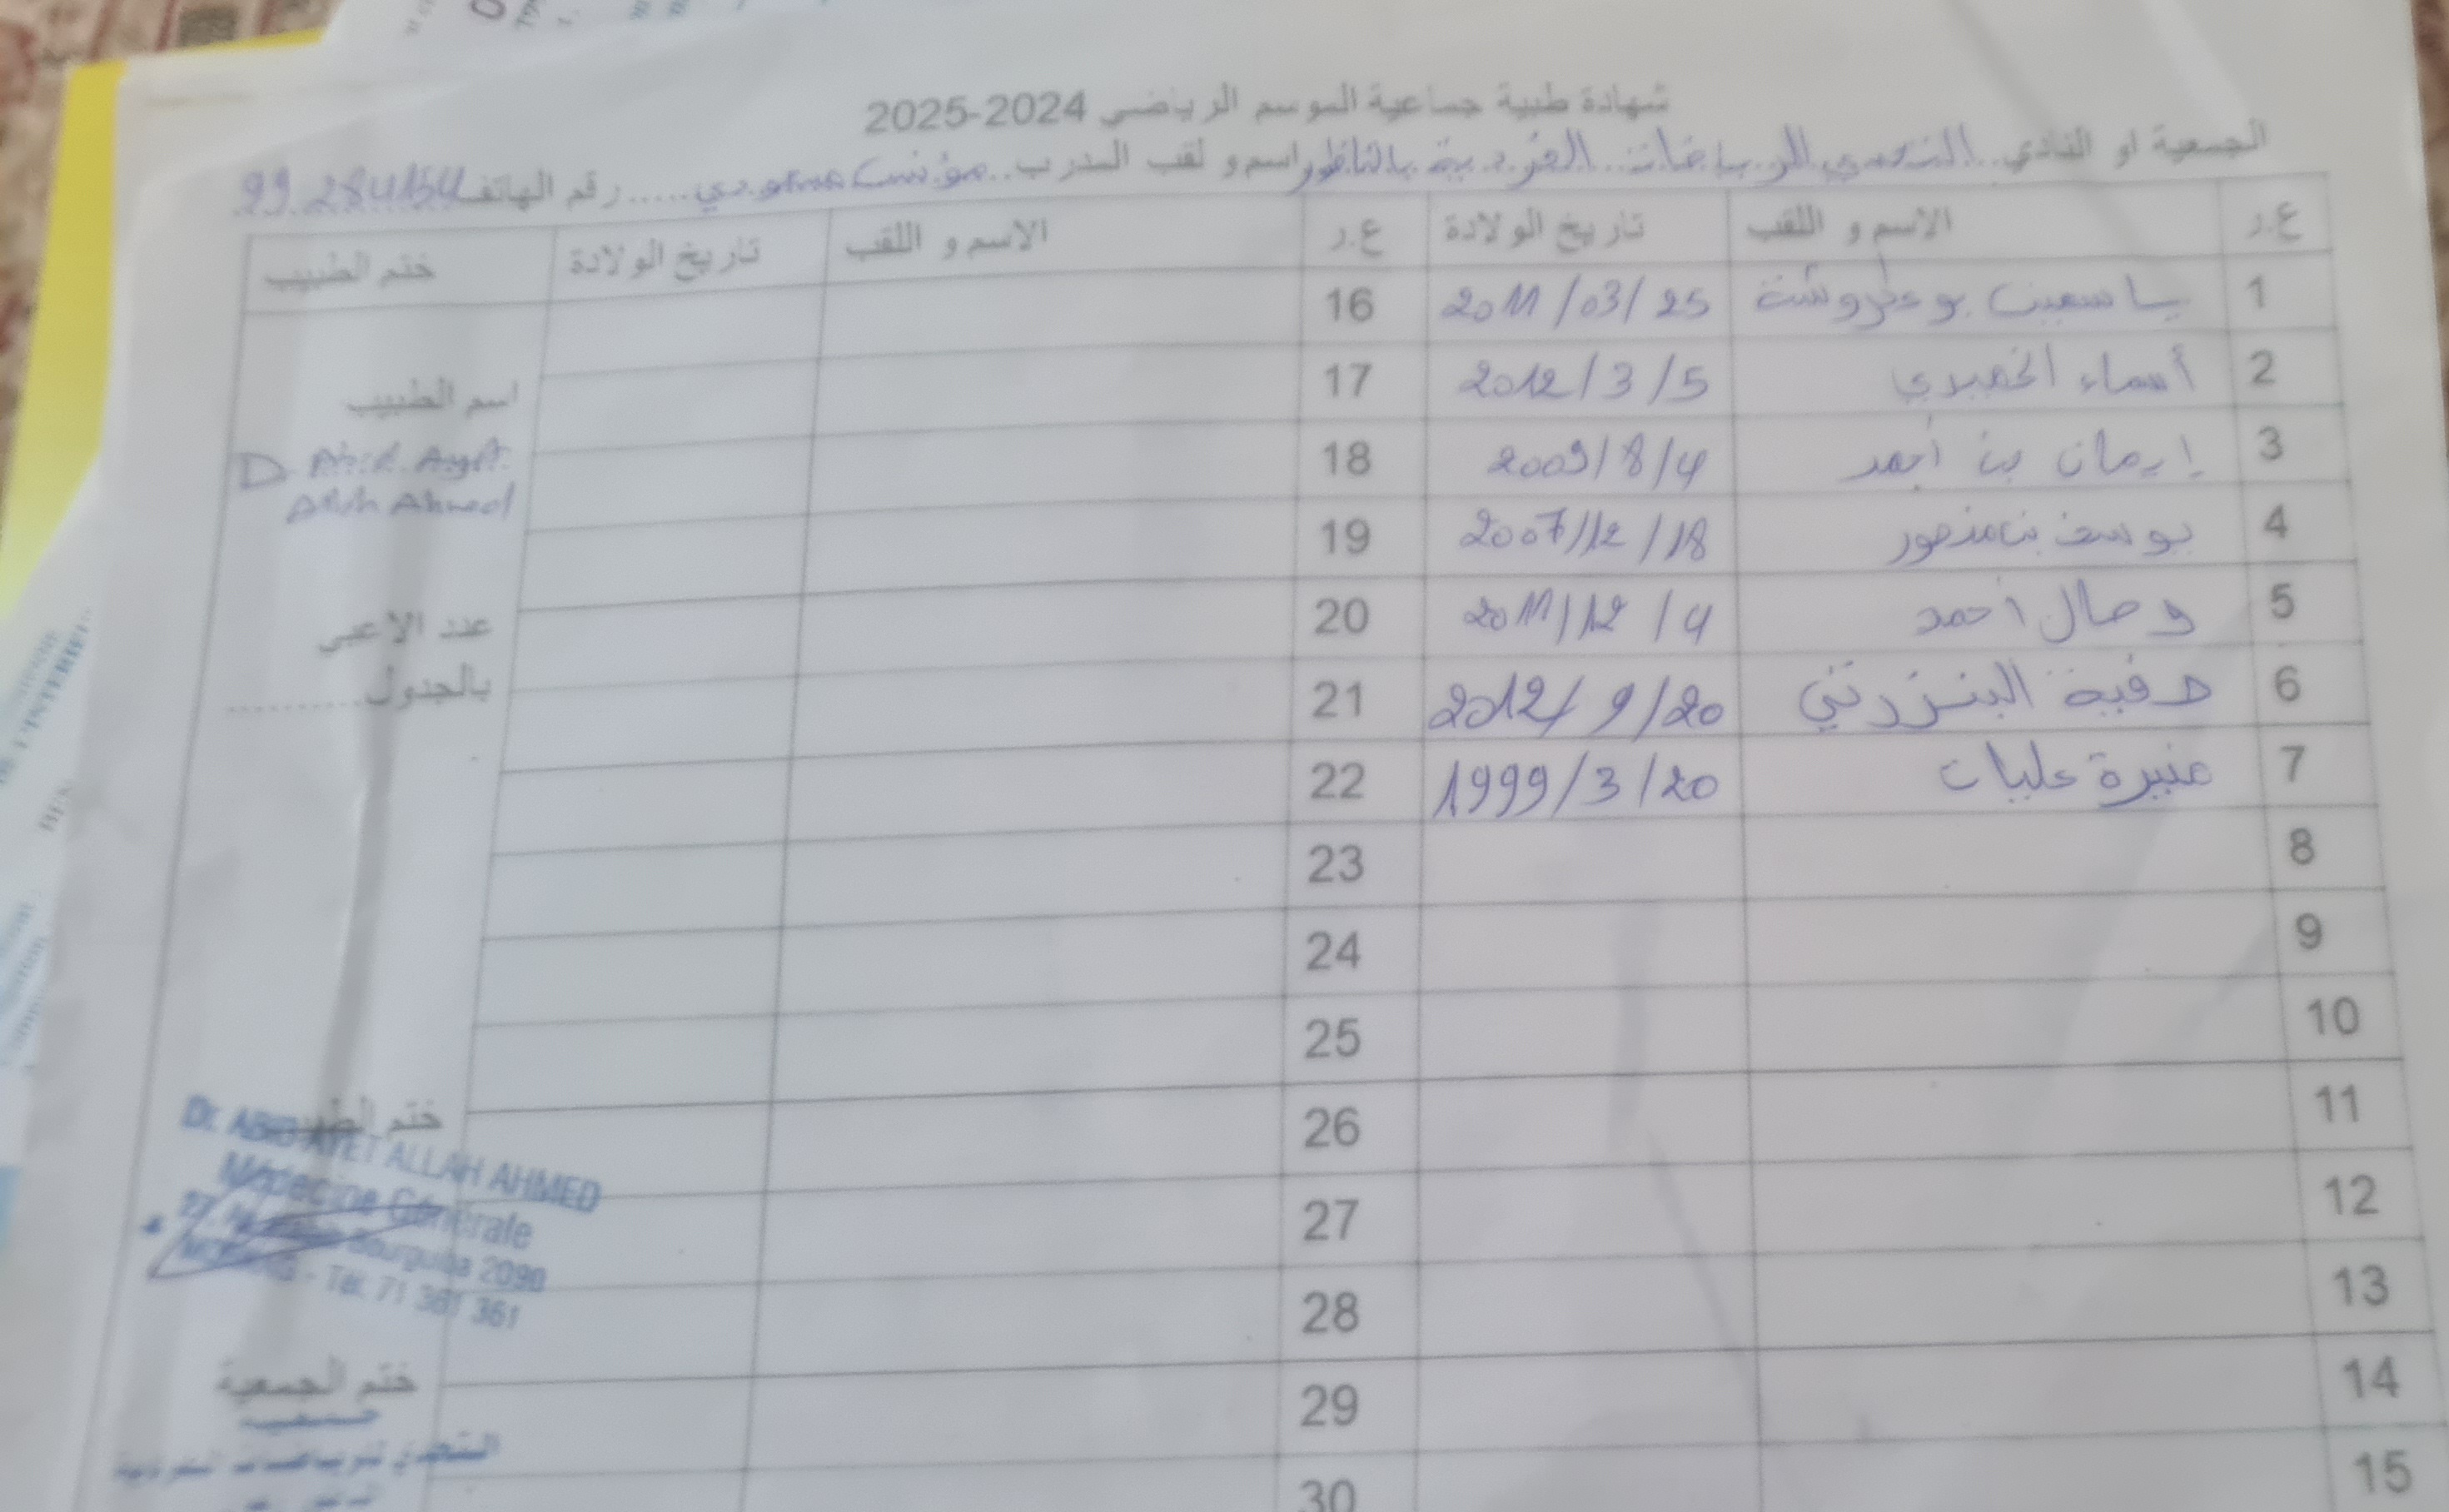 شهادة طبية جماعية الموسم الرياضي 2024-2025
الجمعية او النادي.. التحدي للرياضات.. الفردية بالناظور اسم و لقب المدرب.. مسعودي..... رقم الهاتف 99.284154
ع.ر الاسم و اللقب تاريخ الولادة ع.ر الاسم و اللقب تاريخ الولادة ختم الطبيب
1 ياسمين بوعطروشة 2011/03/25 16
2 أسماء الخميري 2012/3/5 17
3 إيمان بن أحمد 2009/8/4 18
4 يوسف بن منصور 2007/12/18 19
5 وصال أحمد 2011/12/4 20
6 صفية البنزرتي 2012/9/20 21
7 منيرة عليات 1999/3/20 22
8 23
9 24
10 25
11 26
12 27
13 28
14 29
15 30
اسم الطبيب
Ahmed
عدد الاعبي
بالجدول............
ختم
Dr. ABID AYET ALLAH AHMED
Médecine Générale
Bourguiba 2090
- Tél. 71 361 361
ختم الجمعية